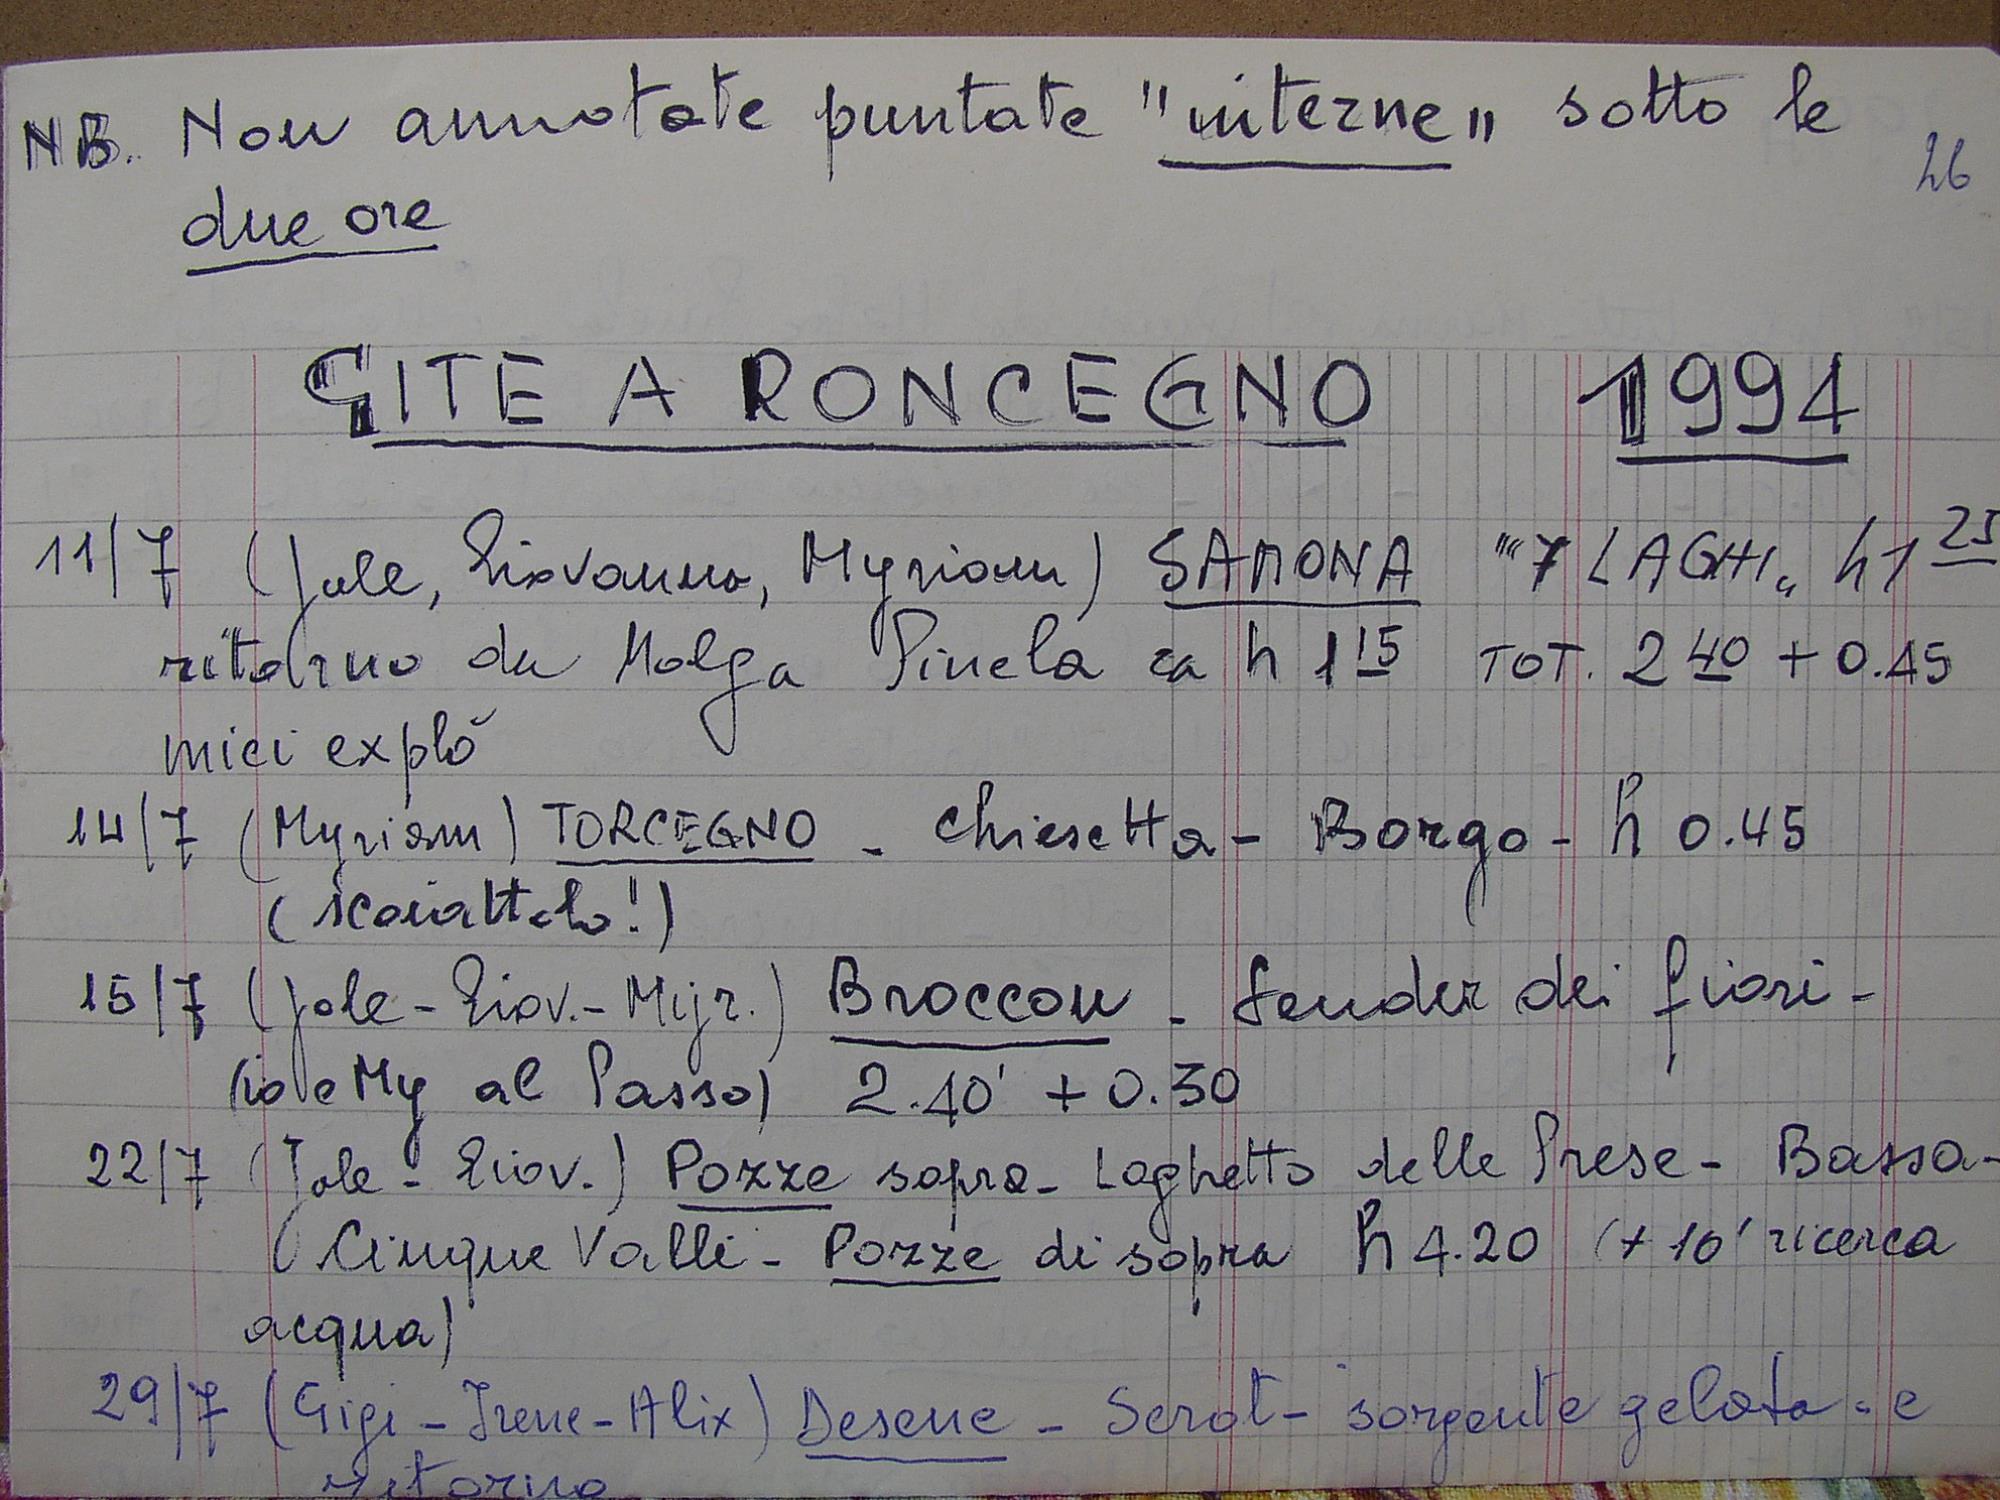 NB. Non annotate puntate "interne" sotto le
26
due ore
GITE A RONCEGNO 1994
11/7 (Jole, Giovanna, Myriam) SAMONA "7 LAGHI" h 1 25
ritorno da Malga Pinela ca h 1 15 TOT. 2 40 + 0.45
miei explò
14/7 (Myriam) TORCEGNO - chiesetta - Borgo - h 0.45
(scoiattolo!)
15/7 (Jole - Giov. - Myr.) Broccon - Sender dei fiori -
(io e My al Passo) 2.40' + 0.30
22/7 (Jole - Giov.) Pozze sopra - Laghetto delle Prese - Bassa -
(Cinque Valli - Pozze di sopra h 4.20 (+ 10' ricerca
acqua)
29/7 (Gigi - Irene - Alix) Desene - Serot - sorgente gelata - e
ritorno